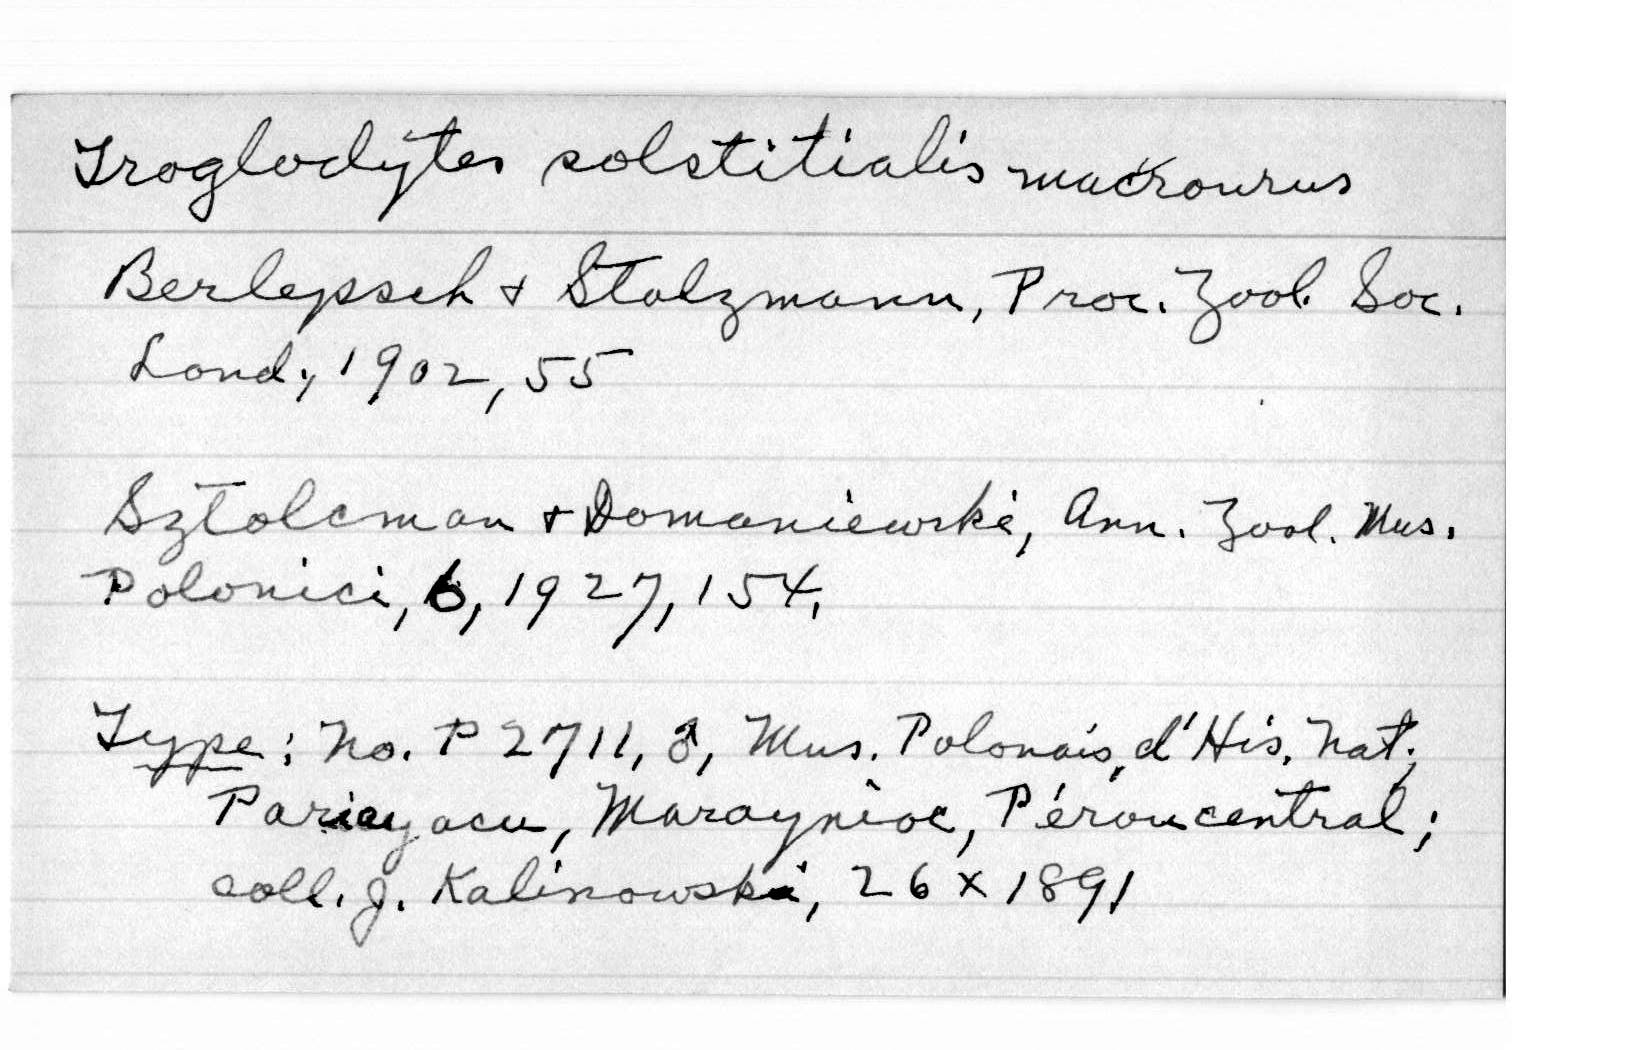 Troglodytes solstitialis macrourus
Berlepsch & Stolzmann, Proc. Zool. Soc.
Lond., 1902, 55
Sztolcman & Domaniewski, Ann. Zool. Mus.
Polonici, 6, 1927, 154,
Type: No. P 2711, ♂, Mus. Polonais, d'His. Nat;
Pariayacu, Maraynioc, Pérou central;
coll. J. Kalinowski, 26 X 1891